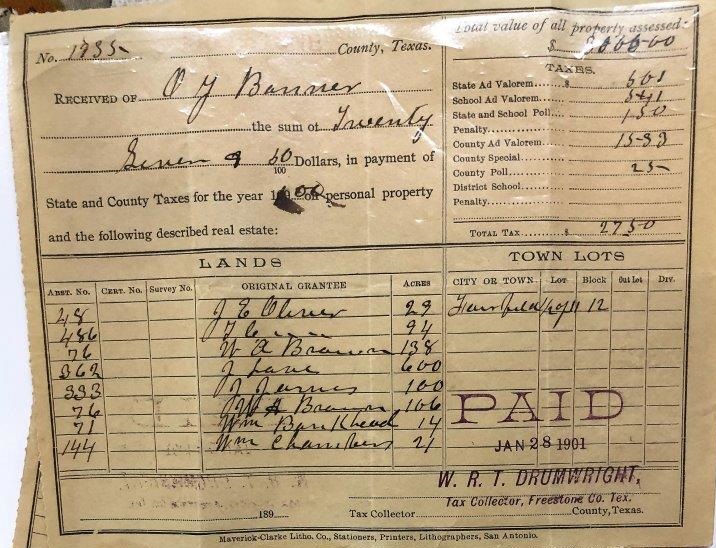 No. 1935 County, Texas.
RECEIVED OF O J Banner
the sum of Twenty
Seven & 50/100 Dollars, in payment of
State and County Taxes for the year 1900 on personal property
and the following described real estate:
Total value of all property assessed:
$
TAXES.
State Ad Valorem $ 601
School Ad Valorem 541
State and School Poll 150
Penalty
County Ad Valorem
County Special
County Poll 25
District School
Penalty
TOTAL TAX $ 2750
LANDS
TOWN LOTS
ABST. No. CERT. No. Survey No. ORIGINAL GRANTEE ACRES CITY OR TOWN Lot Block Out Lot Drv.
48 J E Oliver 29 Fairfield 12
486 94
76 W A Brown 138
362 J Lane 600
333 J James 100
76 W A Brown 106
71 Wm Bankhead 14
144 Wm Chambers 21
PAID
JAN 28 1901
W. R. T. DRUMWRIGHT,
Tax Collector, Freestone Co. Tex.
189 Tax Collector County, Texas.
Maverick-Clarke Litho. Co., Stationers, Printers, Lithographers, San Antonio.